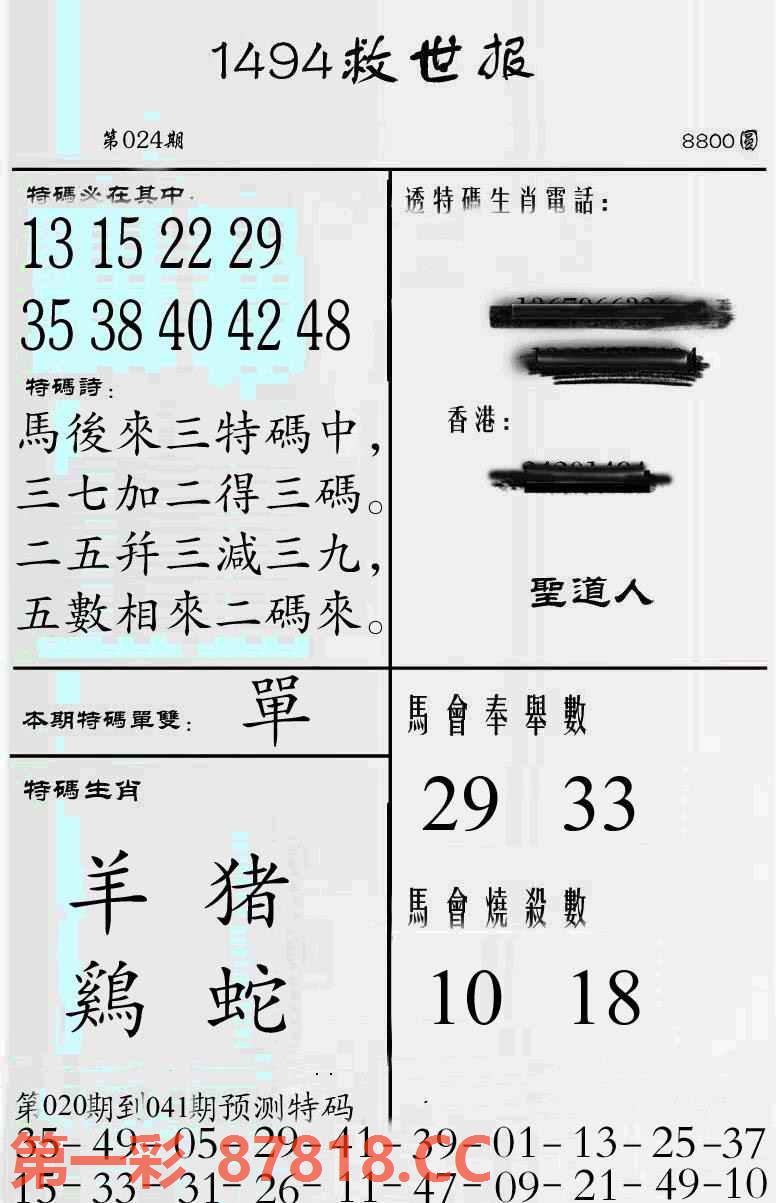 1494救世报
第024期
8800圓
特碼必在其中:
13 15 22 29
35 38 40 42 48
特碼詩:
馬後來三特碼中，
三七加二得三碼。
二五幷三減三九，
五數相來二碼來。
透特碼生肖電話:
香港:
聖道人
本期特碼單雙: 單
特碼生肖
羊 猪
鷄 蛇
馬會奉舉數
29 33
馬會燒殺數
10 18
第020期到041期预测特码
35-49-05-29-41-39-01-13-25-37
15-33-31-26-11-47-09-21-49-10
第一彩 87818.CC